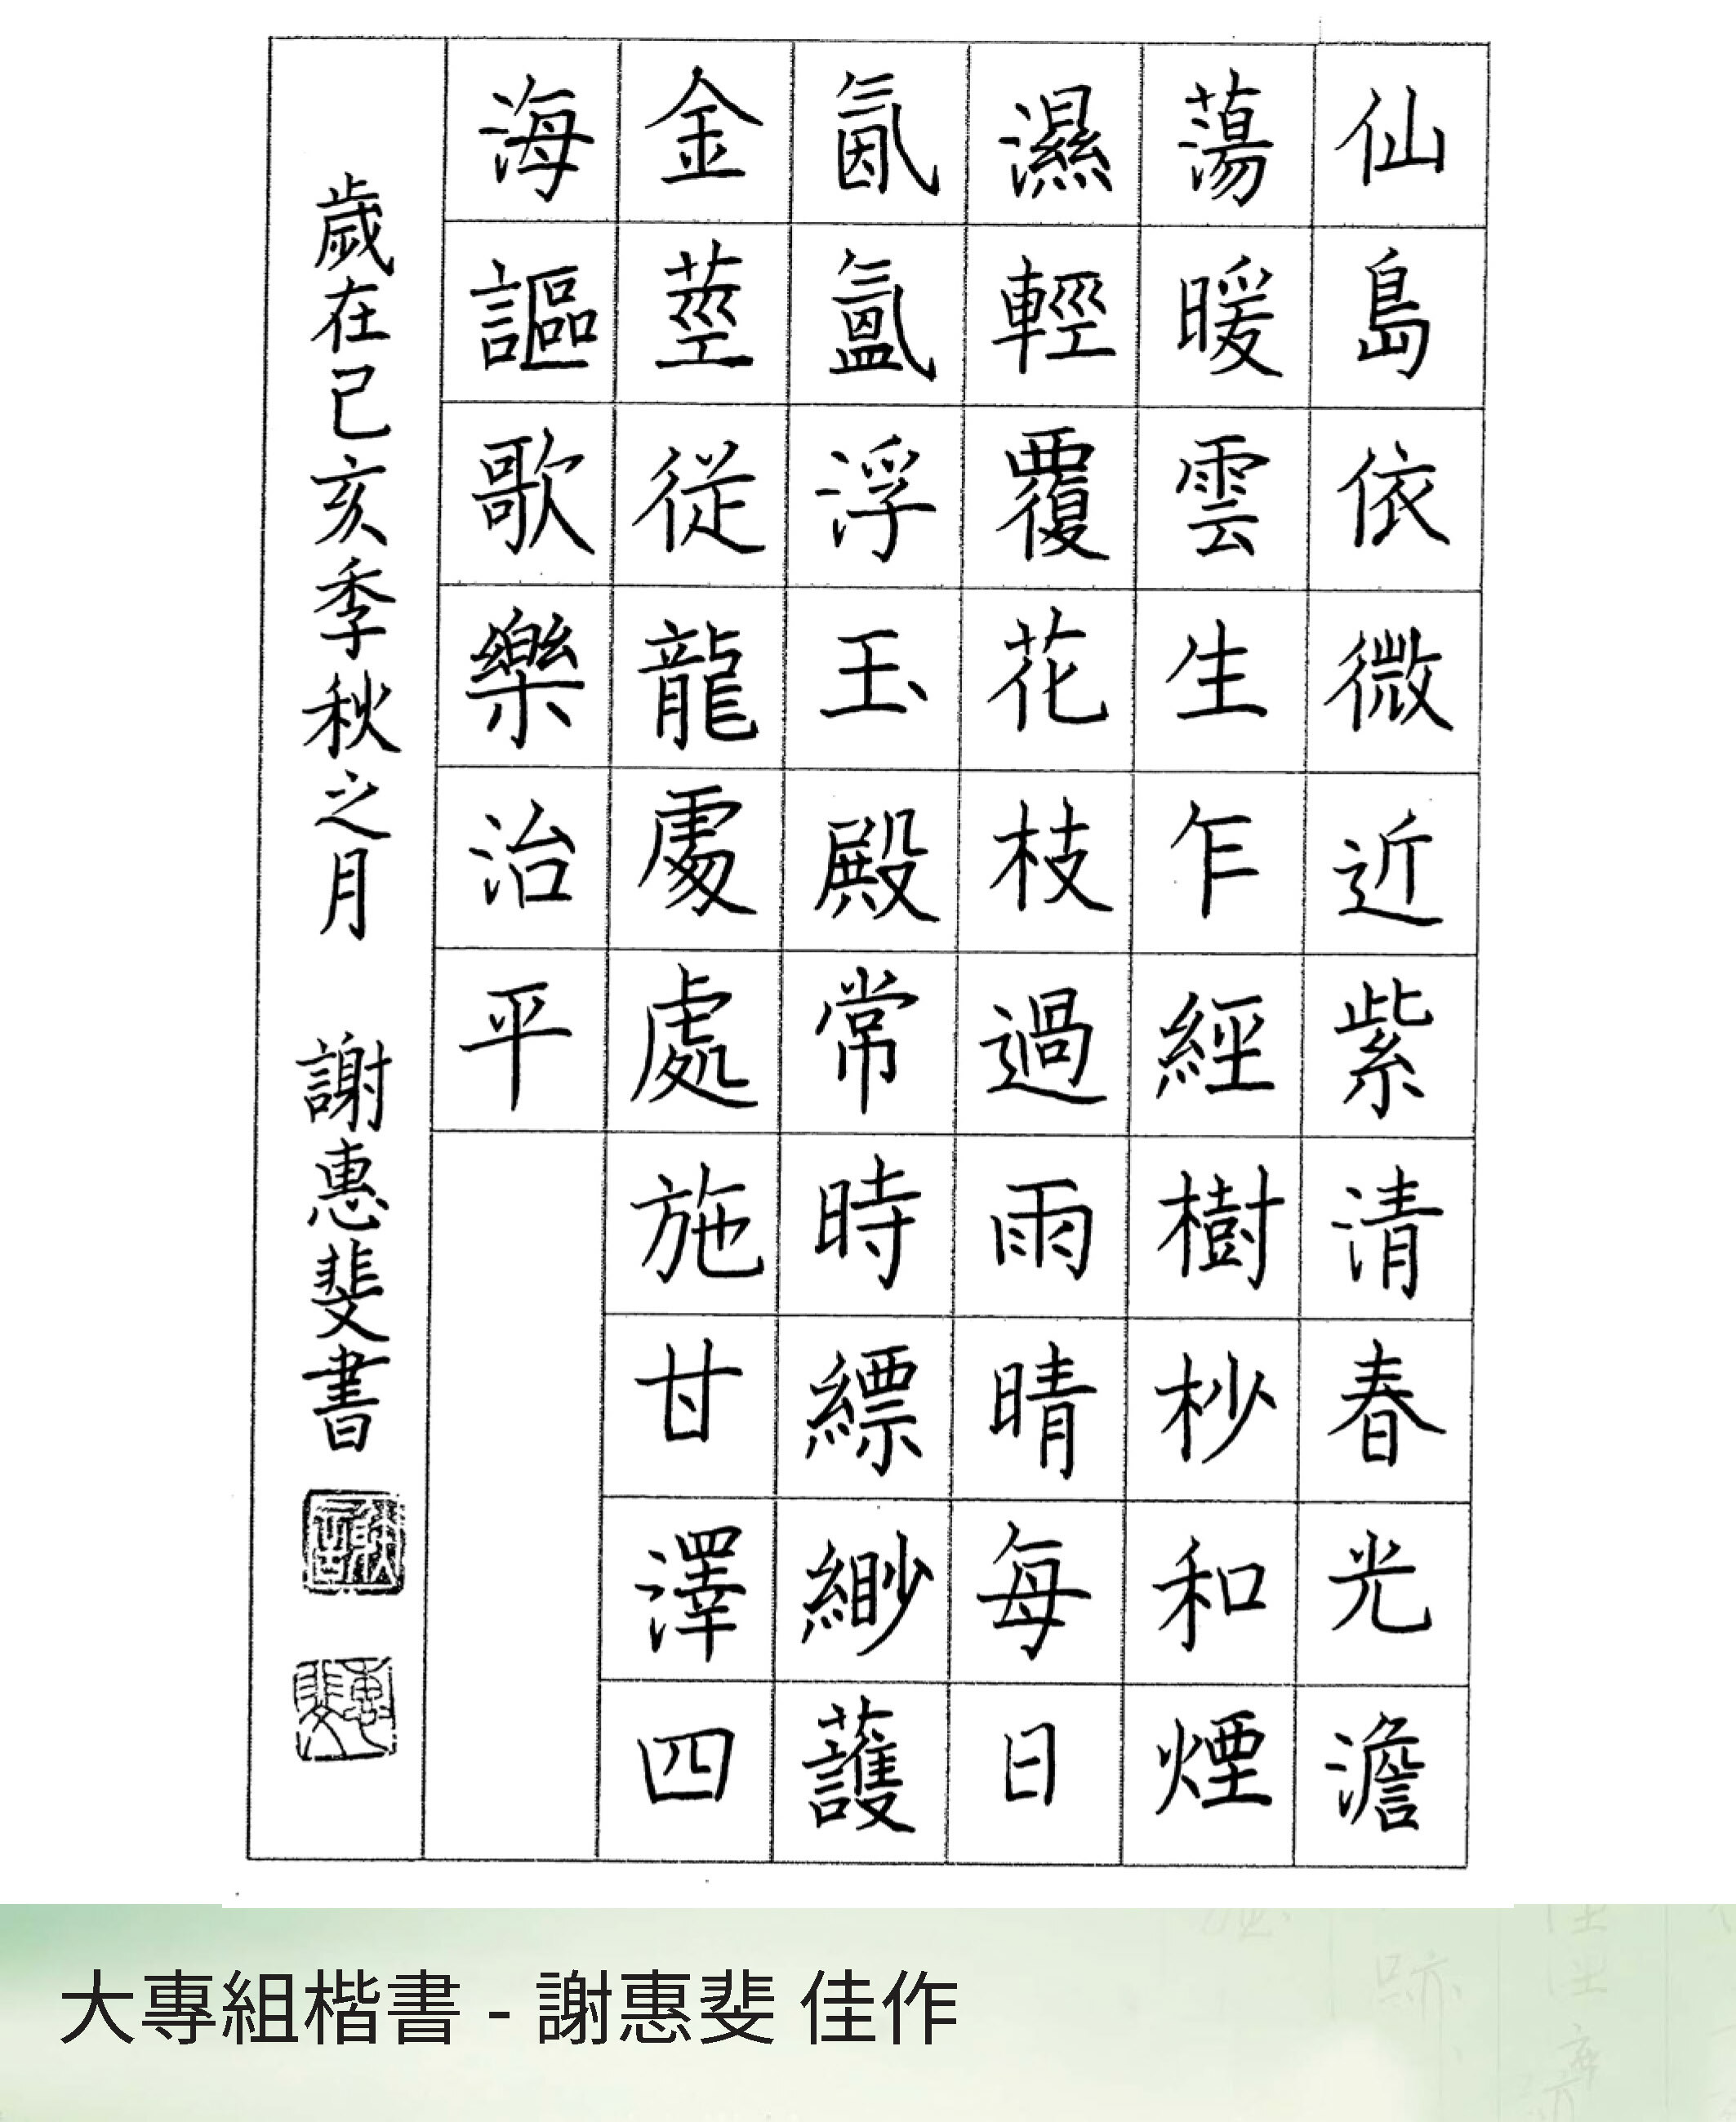 仙島依微近紫清春光澹
蕩暖雲生乍經樹杪和煙
濕輕覆花枝過雨晴每日
氤氳浮玉殿常時縹緲護
金莖從龍處處施甘澤四
海謳歌樂治平
歲在己亥季秋之月 謝惠斐書
謝
惠斐
大專組楷書 - 謝惠斐 佳作